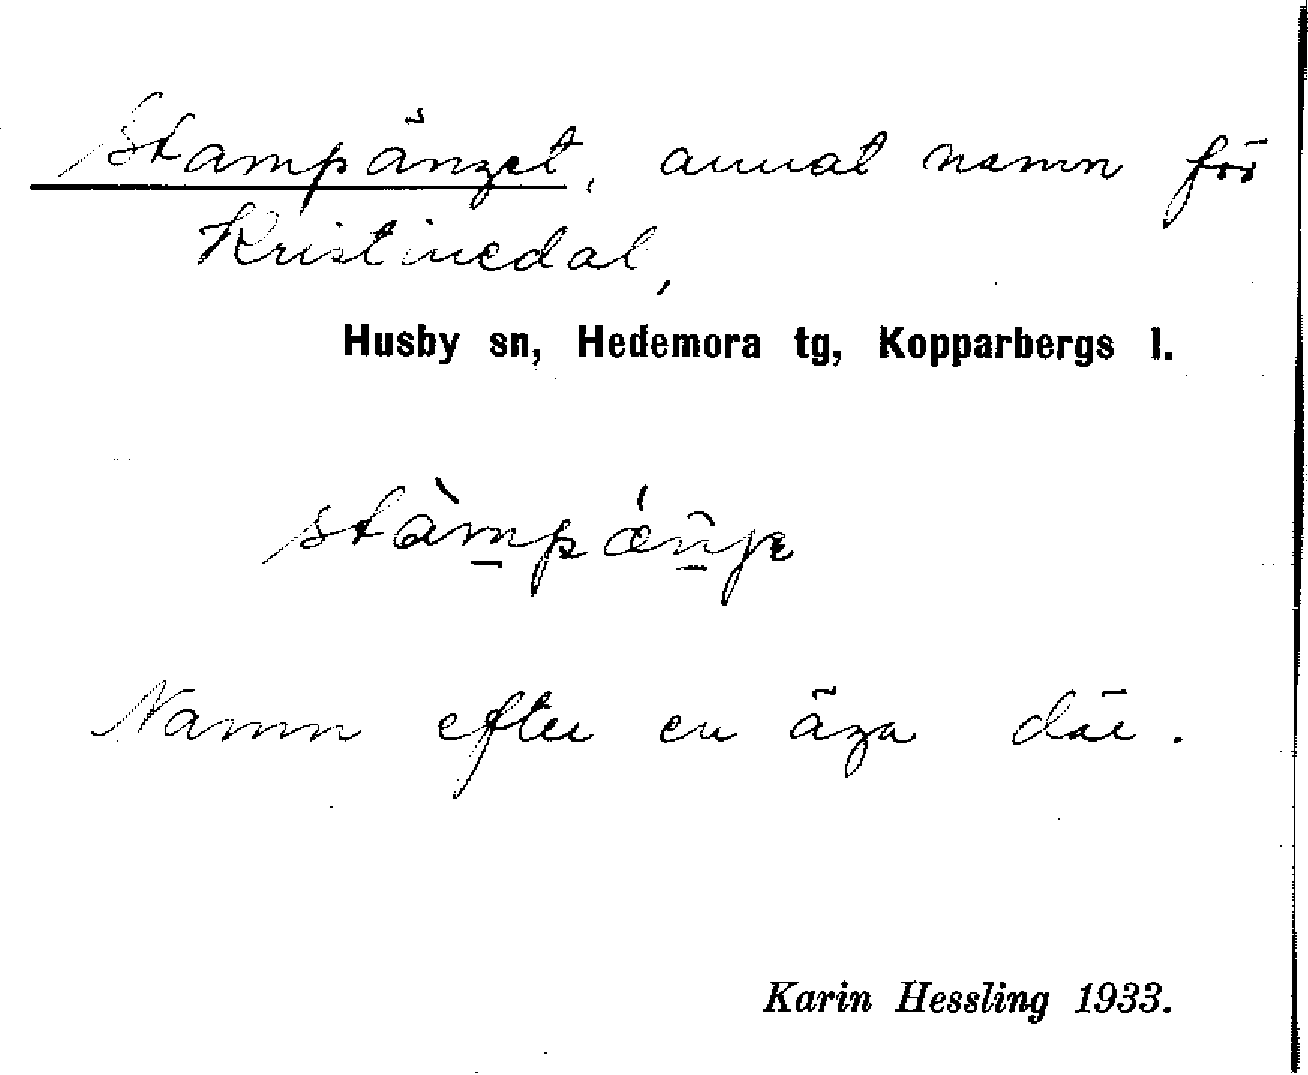 Stampänget, annat namn för
Kristinedal,
Husby sn, Hedemora tg, Kopparbergs l.
Namn efter en äga där.
Karin Hessling 1933.